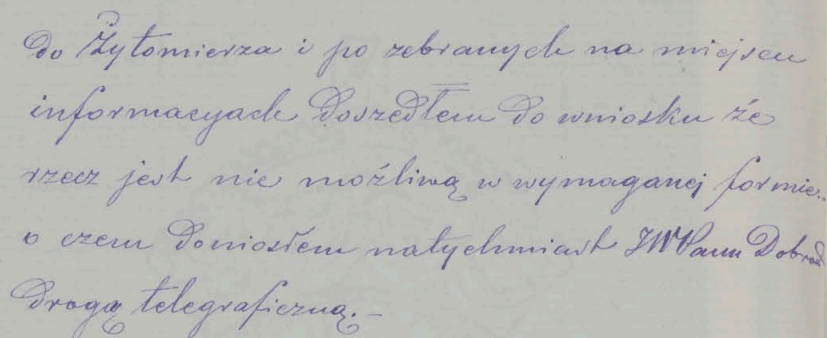 do Żytomierza i po zebranych na miejscu
informacyach doszedłem do wniosku że
rzecz jest nie możliwą w wymaganej formie.-
o czem doniosłem natychmiast JWPanu Dobrod
drogą telegraficzną.-